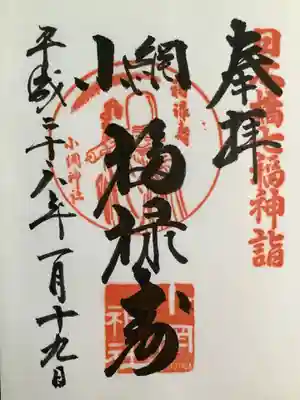 日本橋七福神詣
奉拝
小網
福禄寿
福禄寿
小網神社
小網神社
平成二十八年一月十九日